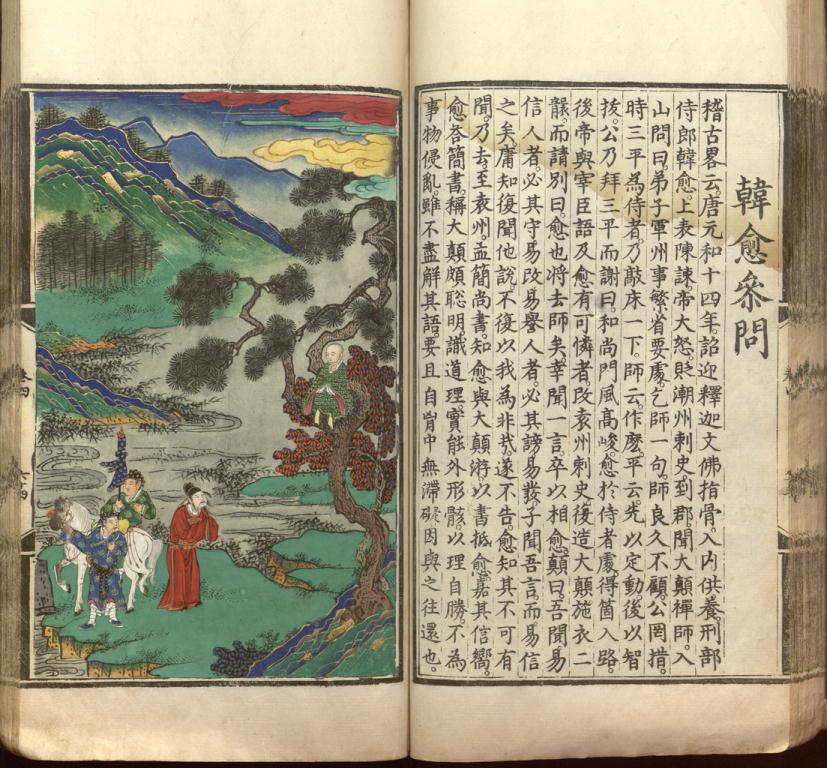 韓愈叅問
稽古畧云。唐元和十四年。詔迎釋迦文佛指骨。入内供養。刑部
侍郎韓愈。上表陳諫。帝大怒。貶潮州刺史。到郡。聞大顛禪師。入
山問曰。弟子軍州事繁。省要處。乞師一句。師良久不顧。公罔措。
時三平為侍者。乃敲床一下。師云。作麽。平云。先以定動。後以智
拔。公乃拜三平而謝曰。和尚門風高峻。愈於侍者處得箇入路。
後帝與宰臣語及愈。有可憐者。改袁州刺史。復造大顛。施衣二
襲。而請別曰。愈也將去師矣。幸聞一言。卒以相愈。顛曰。吾聞易
信人者。必其守易改。易譽人者。必其謗易發。子聞吾言而易信
之矣。庸知復聞他說。不復以我為非哉。遂不告。愈知其不可有
聞。乃去。至袁州。孟簡尚書。知愈與大顛游。以書抵愈。嘉其信嚮。
愈答簡書。稱大顛頗聰明。識道理。實能外形骸。以理自勝。不為
事物侵亂。雖不盡解其語。要且自胷中無滯礙。因與之往還也。